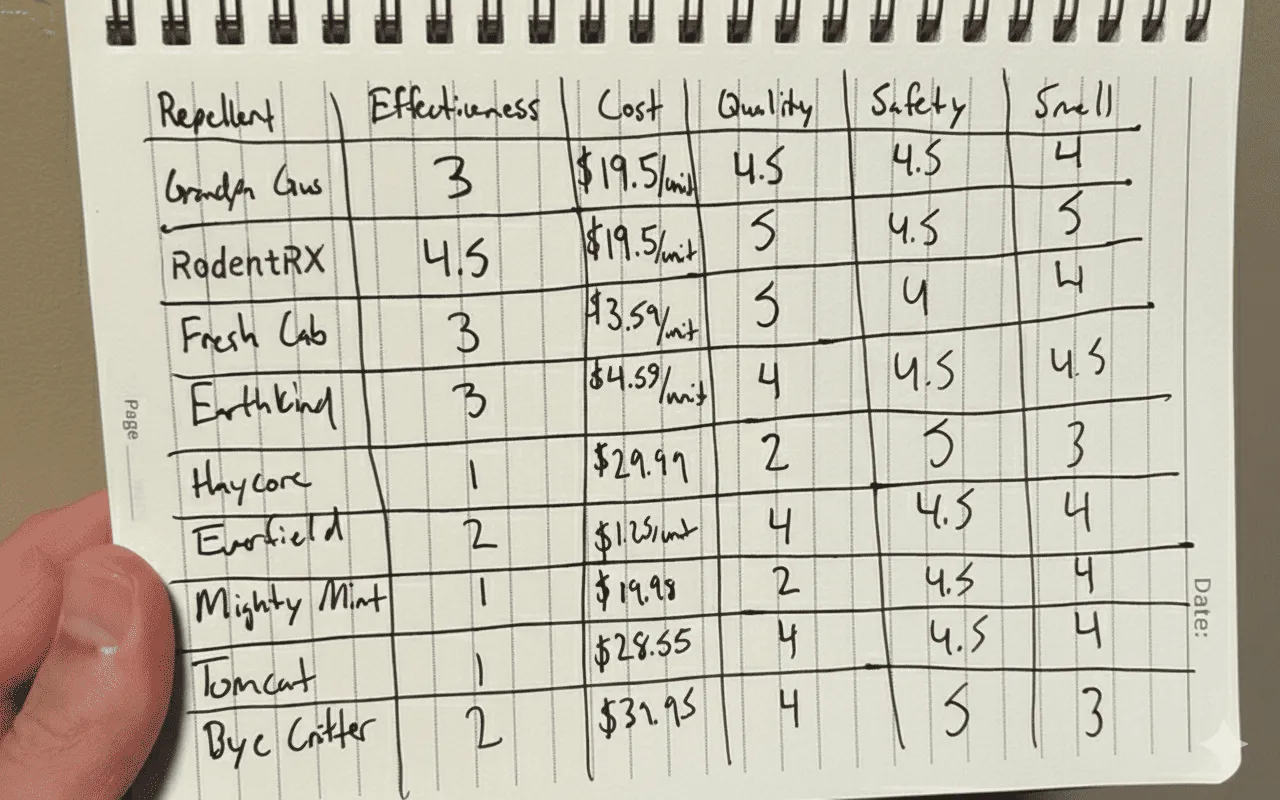 Repellent Effectiveness Cost Quality Safety Smell
Grandpa Gus 3 $19.5/unit 4.5 4.5 4
RodentRX 4.5 $19.5/unit 5 4.5 5
Fresh Cab 3 $3.59/unit 5 4 4
EarthKind 3 $4.59/unit 4 4.5 4.5
Haycore 1 $29.99 2 5 3
Everfield 2 $1.25/unit 4 4.5 4
Mighty Mint 1 $19.98 2 4.5 4
Tomcat 1 $28.55 4 4.5 4
Bye Critter 2 4 5 3
Page
Date: